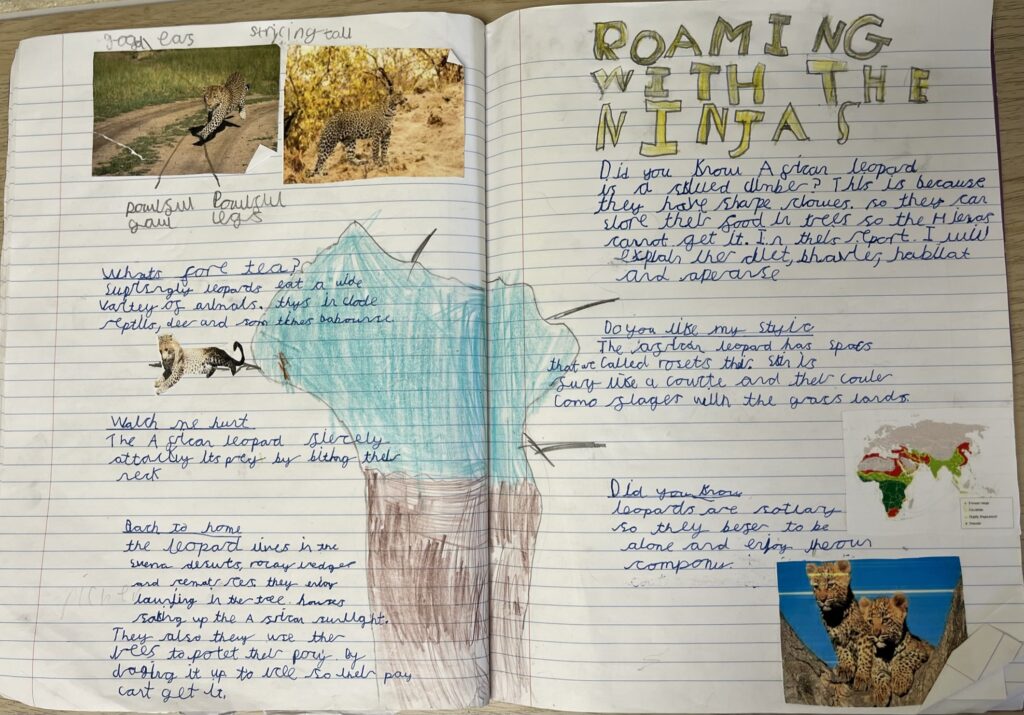 ears
tail
Powerful
legs
Whats fore tea?
Suprisingly leopards eat a wide
vartey of animals. thys in clode
reptils, deer and som times babounse
Watch me hunt
The African leopard fiercely
attacks its prey by biteing their
neck
Back to home
the leopard lives in the
deserts, rocay
and they enjoy
in the tree houses
up the African sunlight.
They also they use the
trees to potet their pory by
draging it up to tree so their pay
cant get it.
ROAMING
WITH THE
NINJAS
Did you know African leopard
is a skiled climber? This is because
they have shape clowes. so they can
store their food in trees so the Hienas
cannot get it. In this report. I will
explain ther diet, habitat
and
Do you like my style
The african leopard has spots
that we called rosets their skin is
fury like a and their couler
camo flages with the grass lands.
Did you know
leopards are solitary
so they be
alone and enjoy
company.